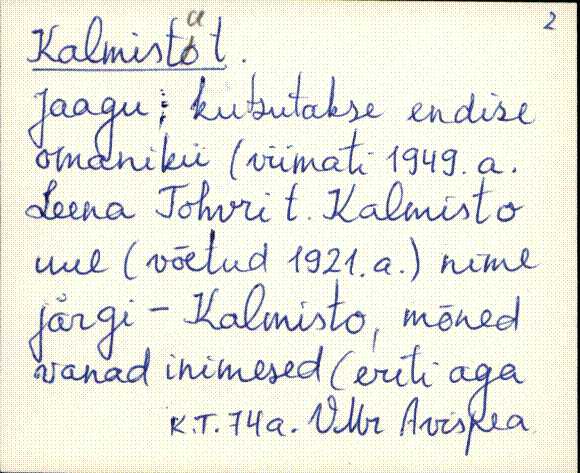 2
Kalmisto t.
Jaagu; kutsutakse endise
omaniku (viimati 1949. a.
Leena Tohvri t. Kalmisto
uue (võetud 1921. a.) nime
järgi - Kalmisto, mõned
vanad inimesed (eriti aga
K.T. 74 a. VMr Avispea